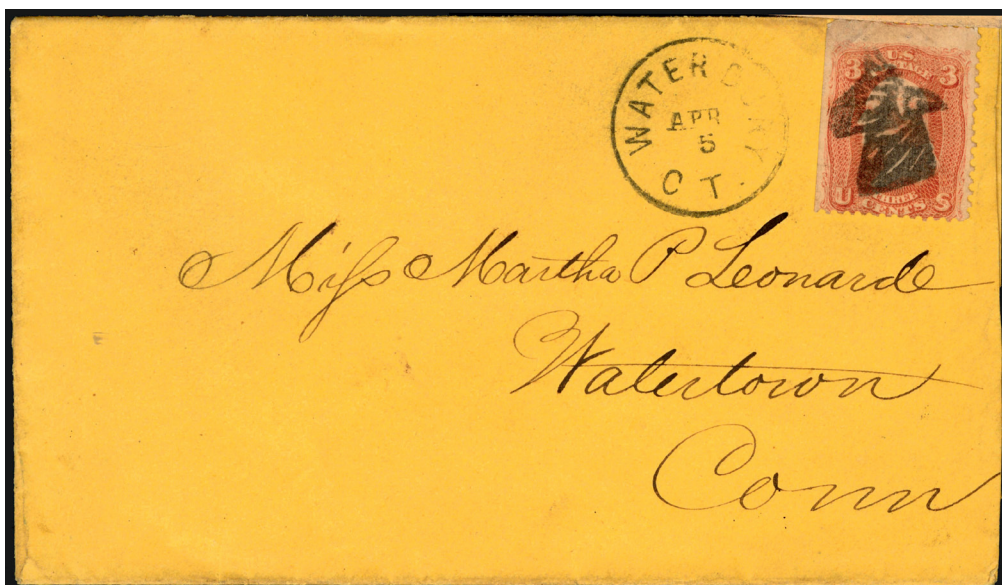 WATERBURY
APR
5
CT.
U.S.
POSTAGE
3 3
U THREE S
CENTS
Miss Martha P Leonarde
Watertown
Conn